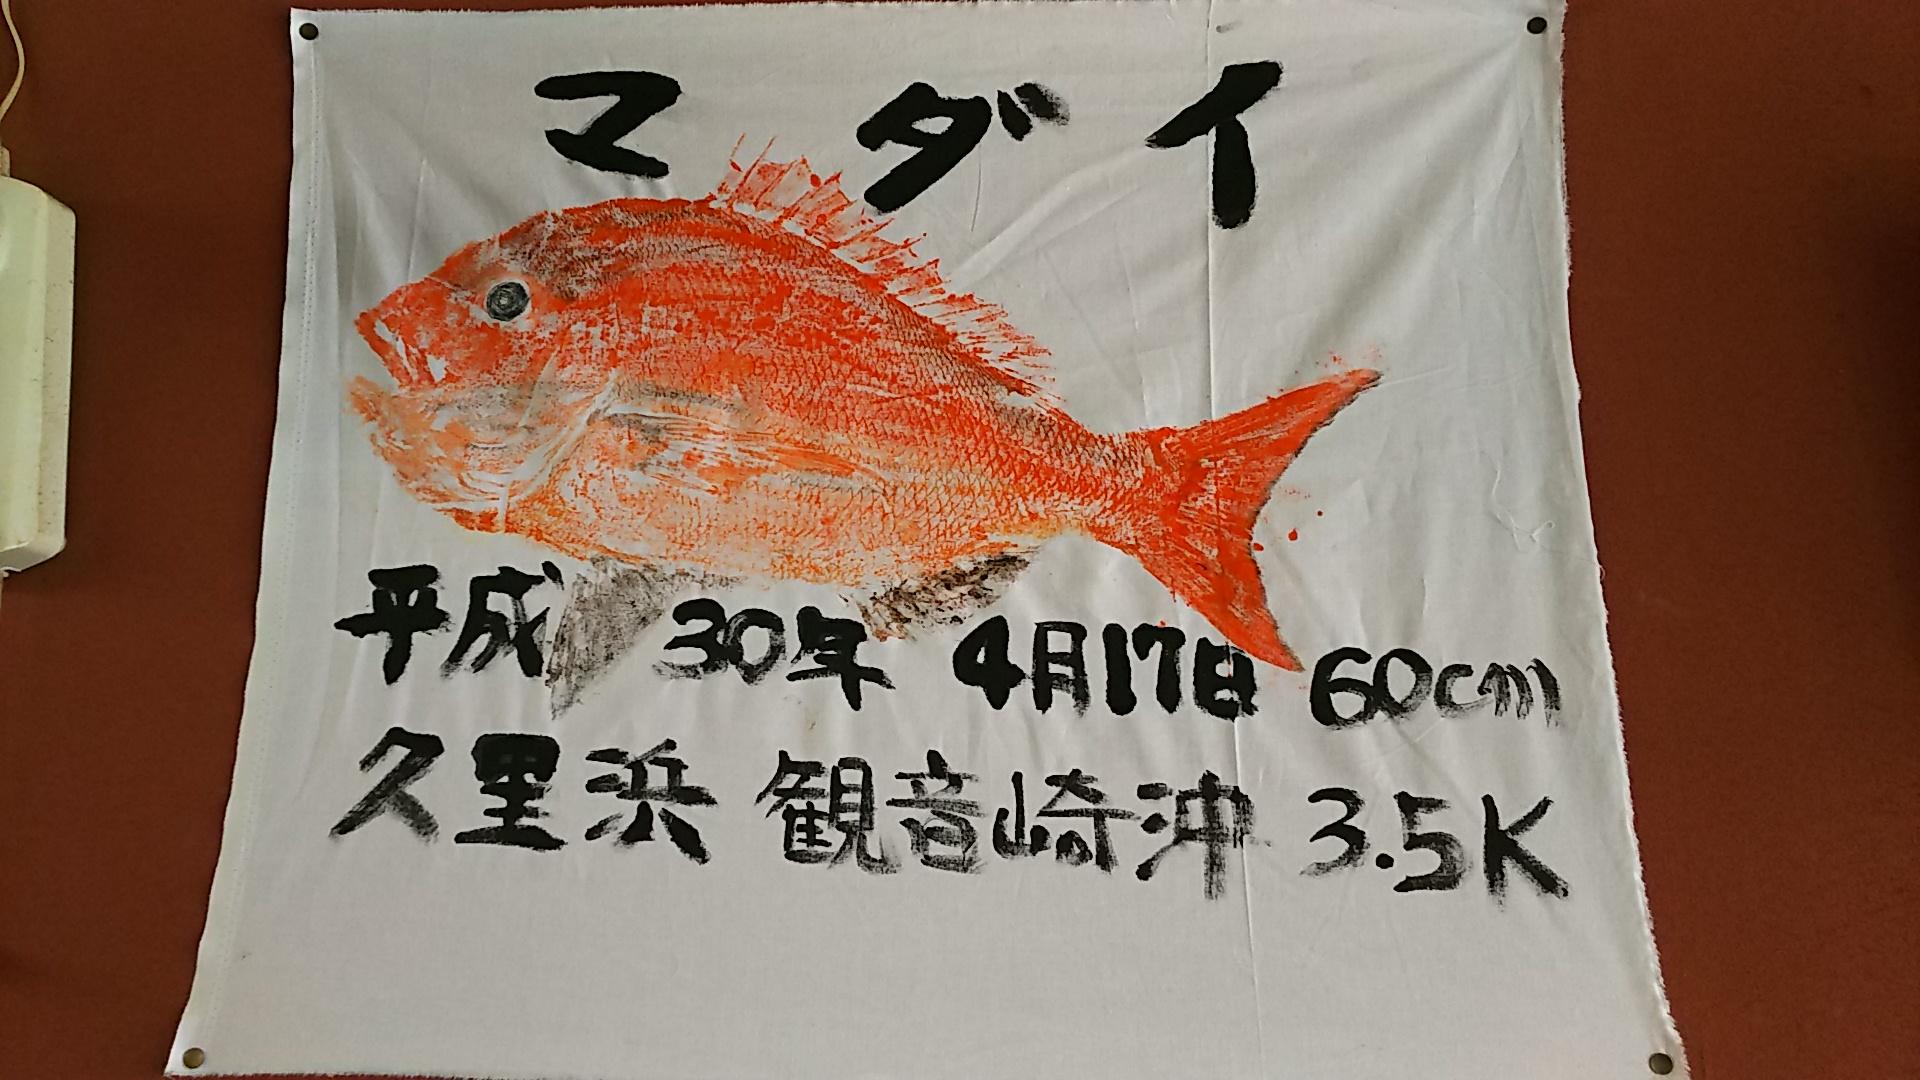 マダイ
平成 30年 4月17日 60cm
久里浜 観音崎沖 3.5K